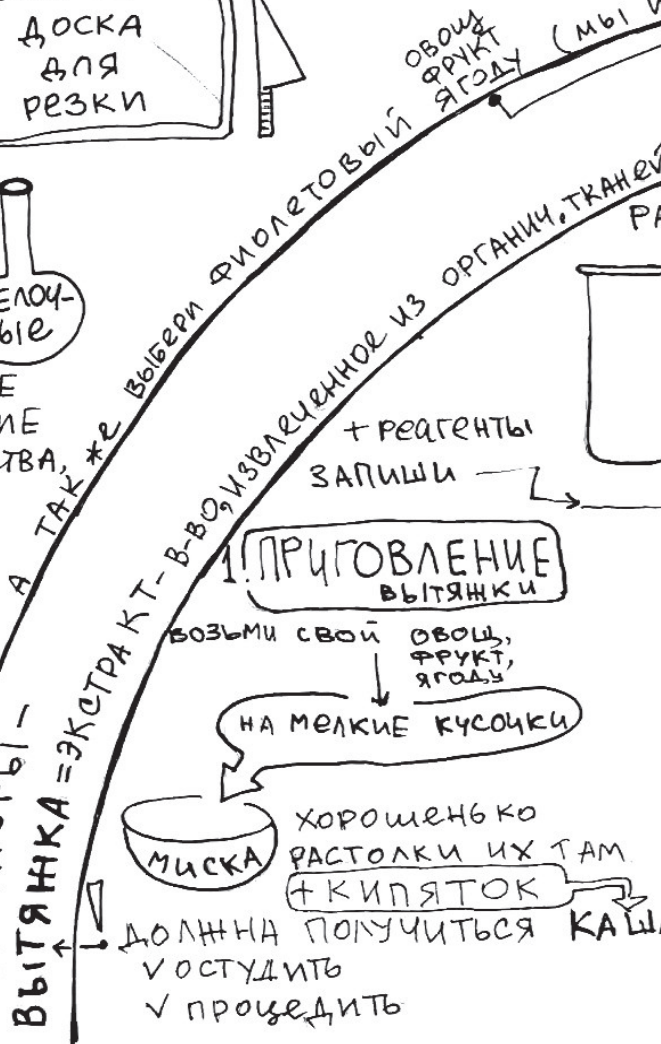 ДОСКА
ДЛЯ
РЕЗКИ
А ТАК ЖЕ ВЫБЕРИ ФИОЛЕТОВЫЙ
ОВОЩ
ФРУКТ
ЯГОДУ
(МЫ
ВЫТЯЖКА = ЭКСТРАКТ - В-ВО, ИЗВЛЕЧЕННОЕ ИЗ ОРГАНИЧ. ТКАНЕЙ
+ РЕАГЕНТЫ
ЗАПИШИ
1! ПРИГОВЛЕНИЕ
ВЫТЯЖКИ
ВОЗЬМИ СВОЙ ОВОЩ,
ФРУКТ,
ЯГОДУ
НА МЕЛКИЕ КУСОЧКИ
МИСКА
ХОРОШЕНЬКО
РАСТОЛКИ ИХ ТАМ
+ КИПЯТОК
ДОЛЖНА ПОЛУЧИТЬСЯ КАША
V ОСТУДИТЬ
V ПРОЦЕДИТЬ